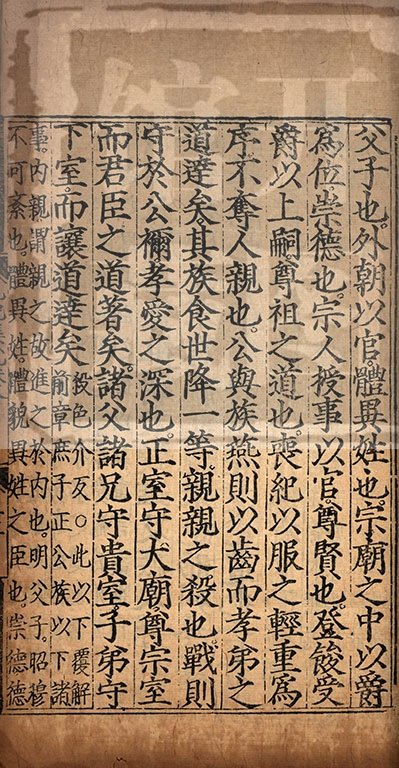 父子也。外朝以官體異姓也。宗廟之中以爵
爲位崇德也。宗人授事以官尊賢也。登餕受
爵以上嗣尊祖之道也。喪紀以服之輕重爲
序不奪人親也。公與族燕則以齒而孝弟之
道達矣其族食世降一等親親之殺也戰則
守於公禰孝愛之深也。正室守大廟尊宗室
而君臣之道著矣。諸父諸兄守貴室子弟守
下室而讓道達矣
殺色介反○此以下覆解
前章庶子正公族以下諸
事。內親謂親之故進之於內也。明父子。昭穆
不可紊也。體異姓。體貌異姓之臣也。崇德德